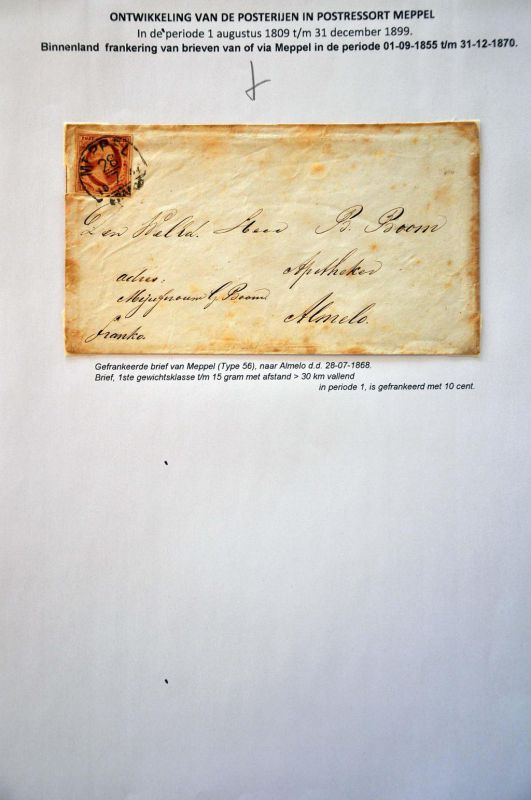 ONTWIKKELING VAN DE POSTERIJEN IN POSTRESSORT MEPPEL
In de periode 1 augustus 1809 t/m 31 december 1899.
Binnenland frankering van brieven van of via Meppel in de periode 01-09-1855 t/m 31-12-1870.
MEPPEL
28
Den WelEd. Heer B. Boom
Apotheker
adres:
Mejufvrouw G Boom
Almelo.
franko.
Gefrankeerde brief van Meppel (Type 56), naar Almelo d.d. 28-07-1868.
Brief, 1ste gewichtsklasse t/m 15 gram met afstand > 30 km vallend
in periode 1, is gefrankeerd met 10 cent.